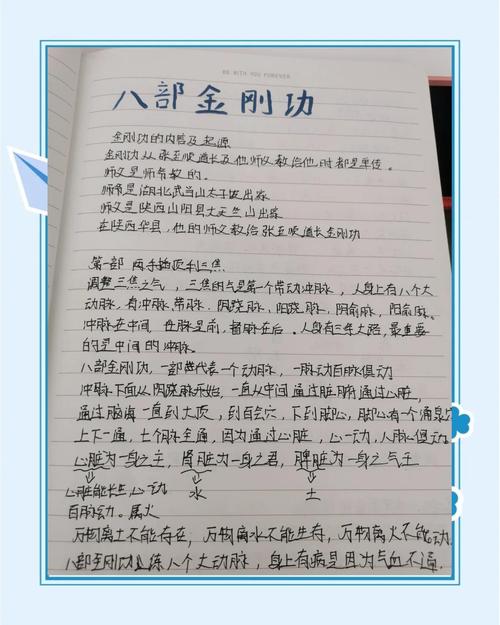 BE WITH YOU FOREVER
八部金刚功
金刚功的内容及起源
金刚功从张至顺道长及他师父教给他时都是单传。
师父是师爷教的。
师爷是湖北武当山太子坡出家
师父是陕西山阳县大天竺山出家
在陕西华县,他的师父教给张至顺道长金刚功
第一部 两手擂顶利三焦
调整三焦之气,三焦的气是第一个带动冲脉,人身上有八个大
动脉,有冲脉,带脉,阴跷脉,阳跷脉,阴俞脉,阳俞脉。
冲脉在中间 任脉是前,督脉在后。人身有三条大路,最重要
的是中间的冲脉。
八部金刚功,一部代表一个动脉,一脉动百脉俱动
冲脉下面从阴跷脉开始,一直从中间通过脏腑通过心脏,
通过脑海一直到大顶,到百会穴,下到脚心,脚心有一个涌泉穴
上下一通,七个脉全通,因为通过心脏,心一动,人脉俱动
心脏为一身之主,肾脏为一身之君,脾脏为一身之气王
心脏能长生心动 水 土
百脉动。属火
万物离土不能存在,万物离水不能生存,万物离火不能动,
八部金刚功以练八个大动脉,身上有病是因为气血不通,